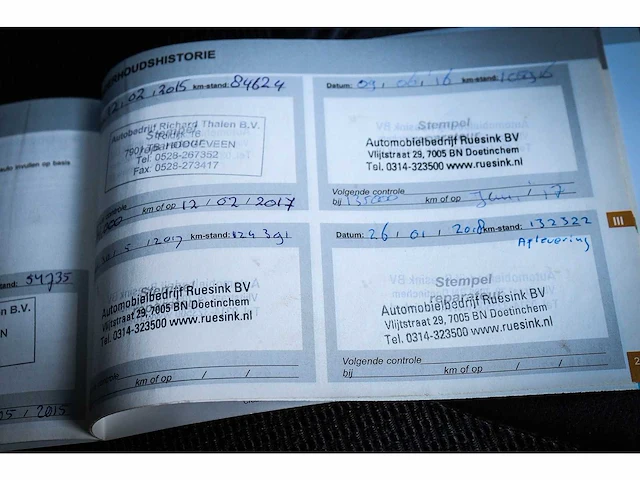 RHOUDSHISTORIE
12 / 02 / 2015 km-stand: 84624
Autobedrijf Richard Thalen B.V.
7901 TS HOOGEVEEN
Tel. 0528-267352
Fax. 0528-273417
km of op 12 / 02 / 2017
Datum: 09 / 06 / 16 km-stand:
Stempel
Automobielbedrijf Ruesink BV
Vlijtstraat 29, 7005 BN Doetinchem
Tel. 0314-323500 www.ruesink.nl
Volgende controle
bij 135000 km of op
/ 5 / 2017 km-stand: 124391
Automobielbedrijf Ruesink BV
Vlijtstraat 29, 7005 BN Doetinchem
Tel. 0314-323500 www.ruesink.nl
controle
km of op / /
Datum: 26 / 01 / 2018 km-stand: 132322
Aflevering
Stempel
reparateur
Automobielbedrijf Ruesink BV
Vlijtstraat 29, 7005 BN Doetinchem
Tel. 0314-323500 www.ruesink.nl
Volgende controle
bij km of op / /
III
2
auto invullen op basis
stand: 54735
B.V.
EN
/ 2015